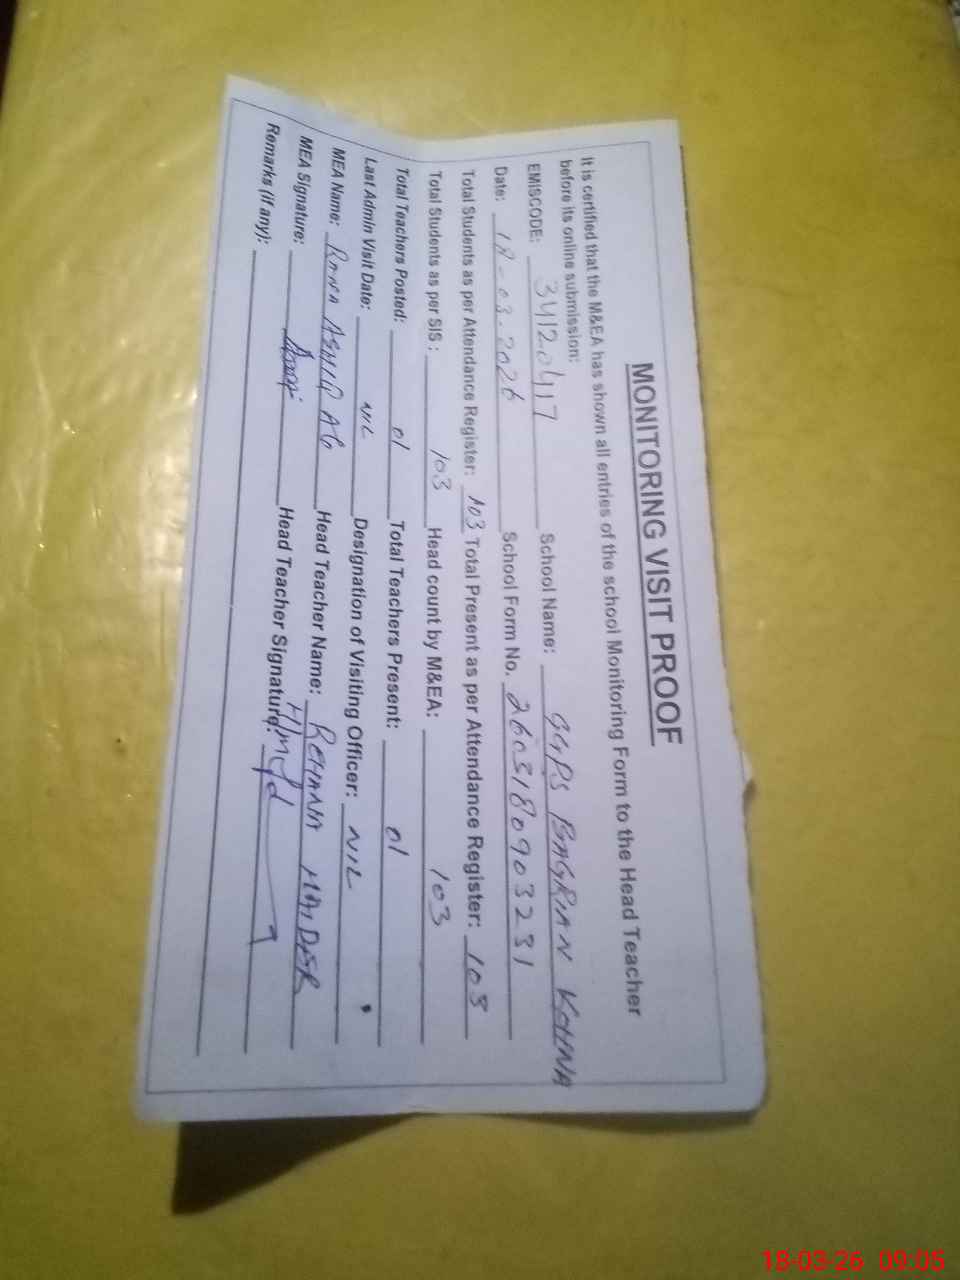 MONITORING VISIT PROOF
It is certified that the M&EA has shown all entries of the school Monitoring Form to the Head Teacher
before its online submission:
EMISCODE: 34120417 School Name: GGPS BAGRIAN KOHNA
Date: 18-03-2026 School Form No. 2603180903231
Total Students as per Attendance Register: 103 Total Present as per Attendance Register: 103
Total Students as per SIS: 103 Head count by M&EA: 103
Total Teachers Posted: 01 Total Teachers Present: 01
Last Admin Visit Date: NIL Designation of Visiting Officer: NIL
MEA Name: RANA ASHIQ Head Teacher Name: REHANA HAIDER
MEA Signature: Head Teacher Signature:
Remarks (if any):
18-03-26 09:05